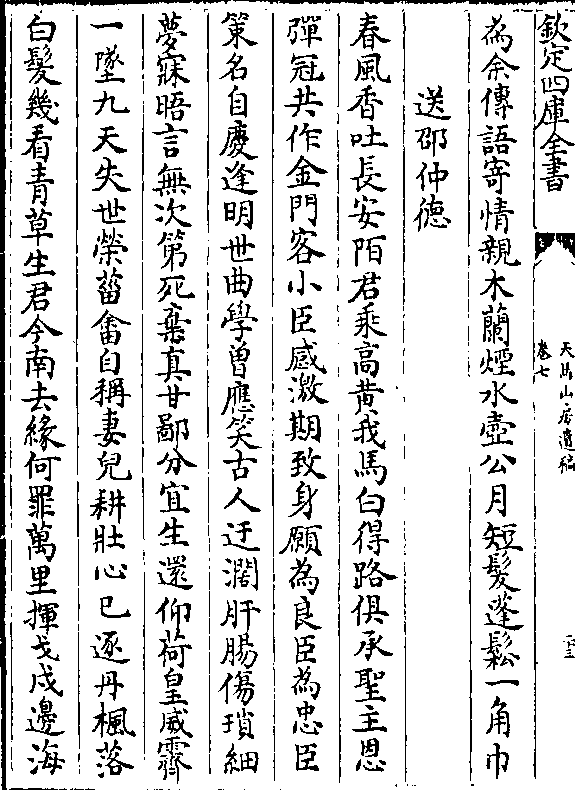 欽定四庫全書
天馬山房遺稿
卷七
為余傳語寄情親木蘭煙水壺公月短髪蓬鬆一角巾
送邵仲德
春風香吐長安陌君乘高黄我馬白得路俱承聖主恩
彈冠共作金門客小臣感激期致身願為良臣為忠臣
策名自慶逢明世曲學曾應笑古人迂濶肝腸傷瑣細
夢寐晤言無次第死棄真甘鄙分宜生還仰荷皇威霽
一墜九天失世榮菑畬自稱妻兒耕壯心已逐丹楓落
白髪幾看青草生君今南去緣何罪萬里揮戈戍邊海